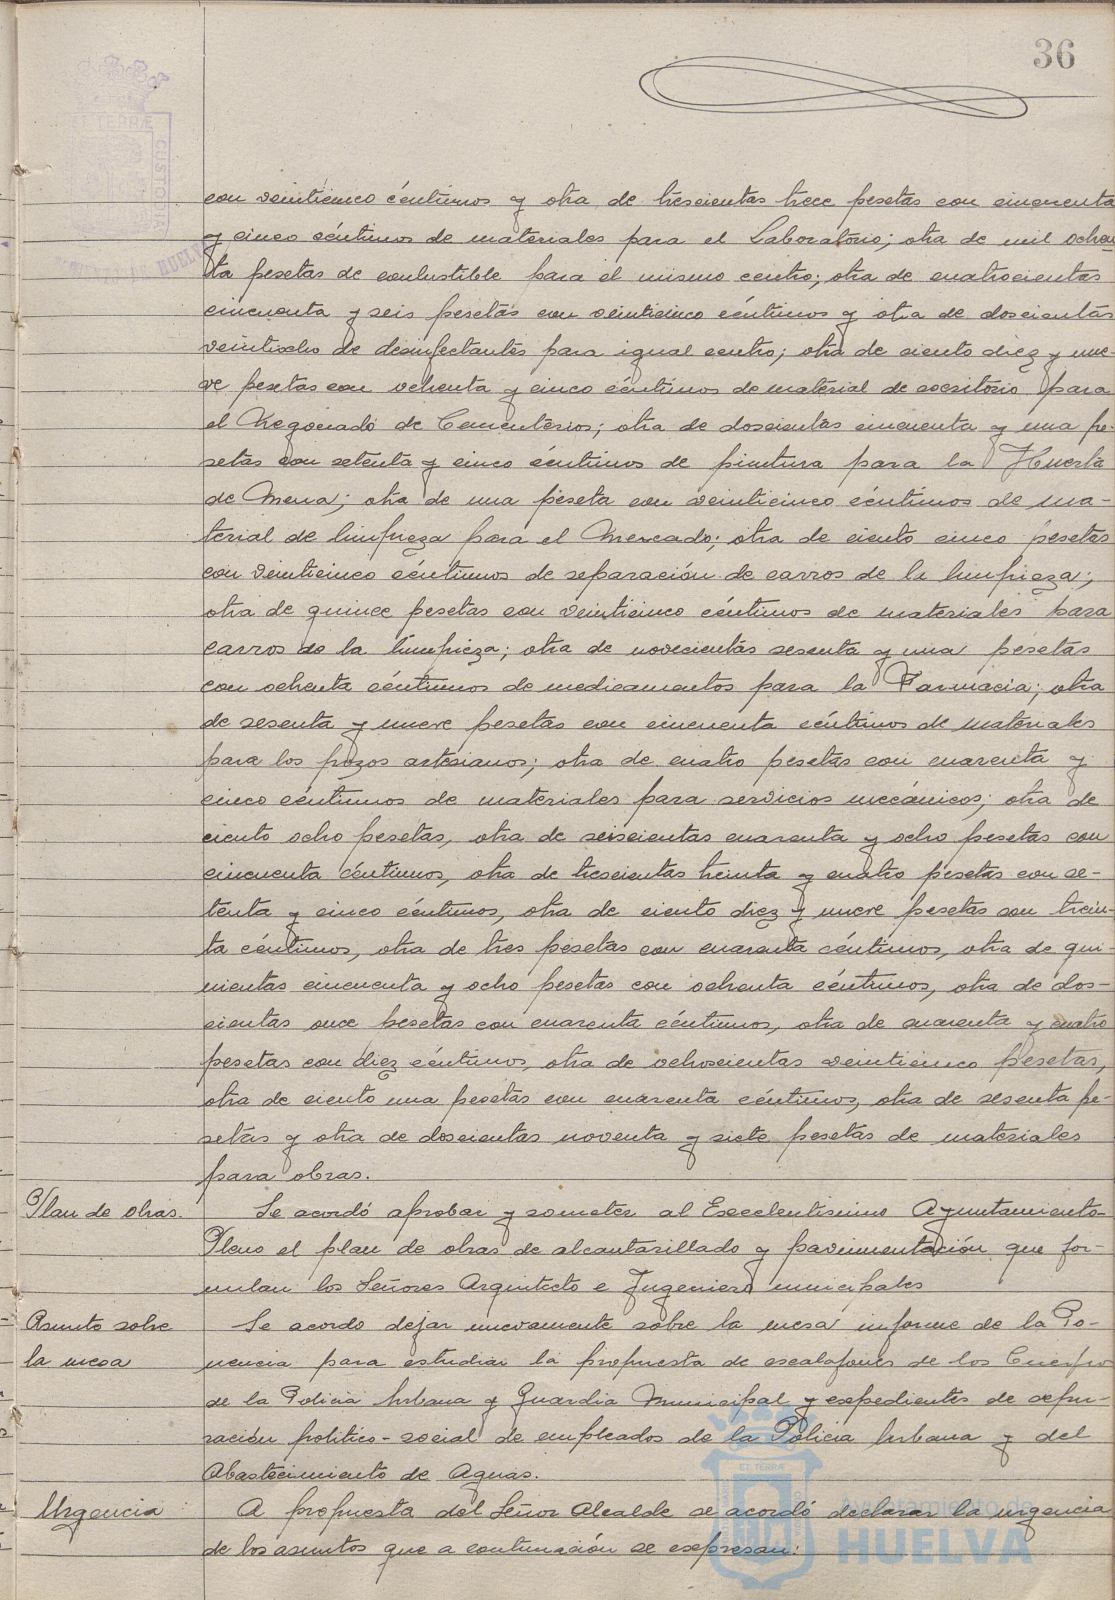 36
con veinticinco céntimos y otra de trescientas trece pesetas con cincuenta
y cinco céntimos de materiales para el Laboratorio; otra de mil ochen-
ta pesetas de conbustible para el mismo centro; otra de cuatrocientas
cincuenta y seis pesetas con veinticinco céntimos y otra de doscientas
veintiocho de desinfectantes para igual centro; otra de ciento diez y nue-
ve pesetas con ochenta y cinco céntimos de material de escritorio para
el Negociado de Cementerios; otra de doscientas cincuenta y una pe-
setas con setenta y cinco céntimos de pintura para la Huerta
de Mena; otra de una peseta con veinticinco céntimos de ma-
terial de limpieza para el Mercado; otra de ciento cinco pesetas
con veinticinco céntimos de reparación de carros de la limpieza;
otra de quince pesetas con veinticinco céntimos de materiales para
carros de la limpieza; otra de novecientas sesenta y una pesetas
con ochenta céntimos de medicamentos para la Farmacia; otra
de sesenta y nueve pesetas con cincuenta céntimos de materiales
para los pozos artesianos; otra de cuatro pesetas con cuarenta y
cinco céntimos de materiales para servicios mecánicos; otra de
ciento ocho pesetas, otra de seiscientas cuarenta y ocho pesetas con
cincuenta céntimos, otra de trescientas treinta y cuatro pesetas con se-
tenta y cinco céntimos, otra de ciento diez y nueve pesetas con trein-
ta céntimos, otra de tres pesetas con cuarenta céntimos, otra de qui-
nientas cincuenta y ocho pesetas con ochenta céntimos, otra de dos-
cientas once pesetas con cuarenta céntimos, otra de cuarenta y cuatro
pesetas con diez céntimos, otra de ochocientas veinticinco pesetas,
otra de ciento una pesetas con cuarenta céntimos, otra de sesenta pe-
setas y otra de doscientas noventa y siete pesetas de materiales
para obras.
Plan de obras.
Se acordó aprobar y someter al Excelentisimo Ayuntamiento-
Pleno el plan de obras de alcantarillado y pavimentación que for-
mulan los Señores Arquitecto e Ingeniero municipales
Asunto sobre
la mesa
Se acordo dejar nuevamente sobre la mesa informe de la Po-
nencia para estudiar la propuesta de escalafones de los Cuerpo
de la Policia Urbana y Guardia Municipal y expedientes de depu-
ración politico-social de empleados de la Policia Urbana y del
Abastecimiento de Aguas.
Urgencia
A propuesta del Señor Alcalde se acordó declarar la urgencia
de los asuntos que a continuación se expresan:
ET TERRÆ CUSTODIA
ET TERRÆ
Ayuntamiento de
HUELVA